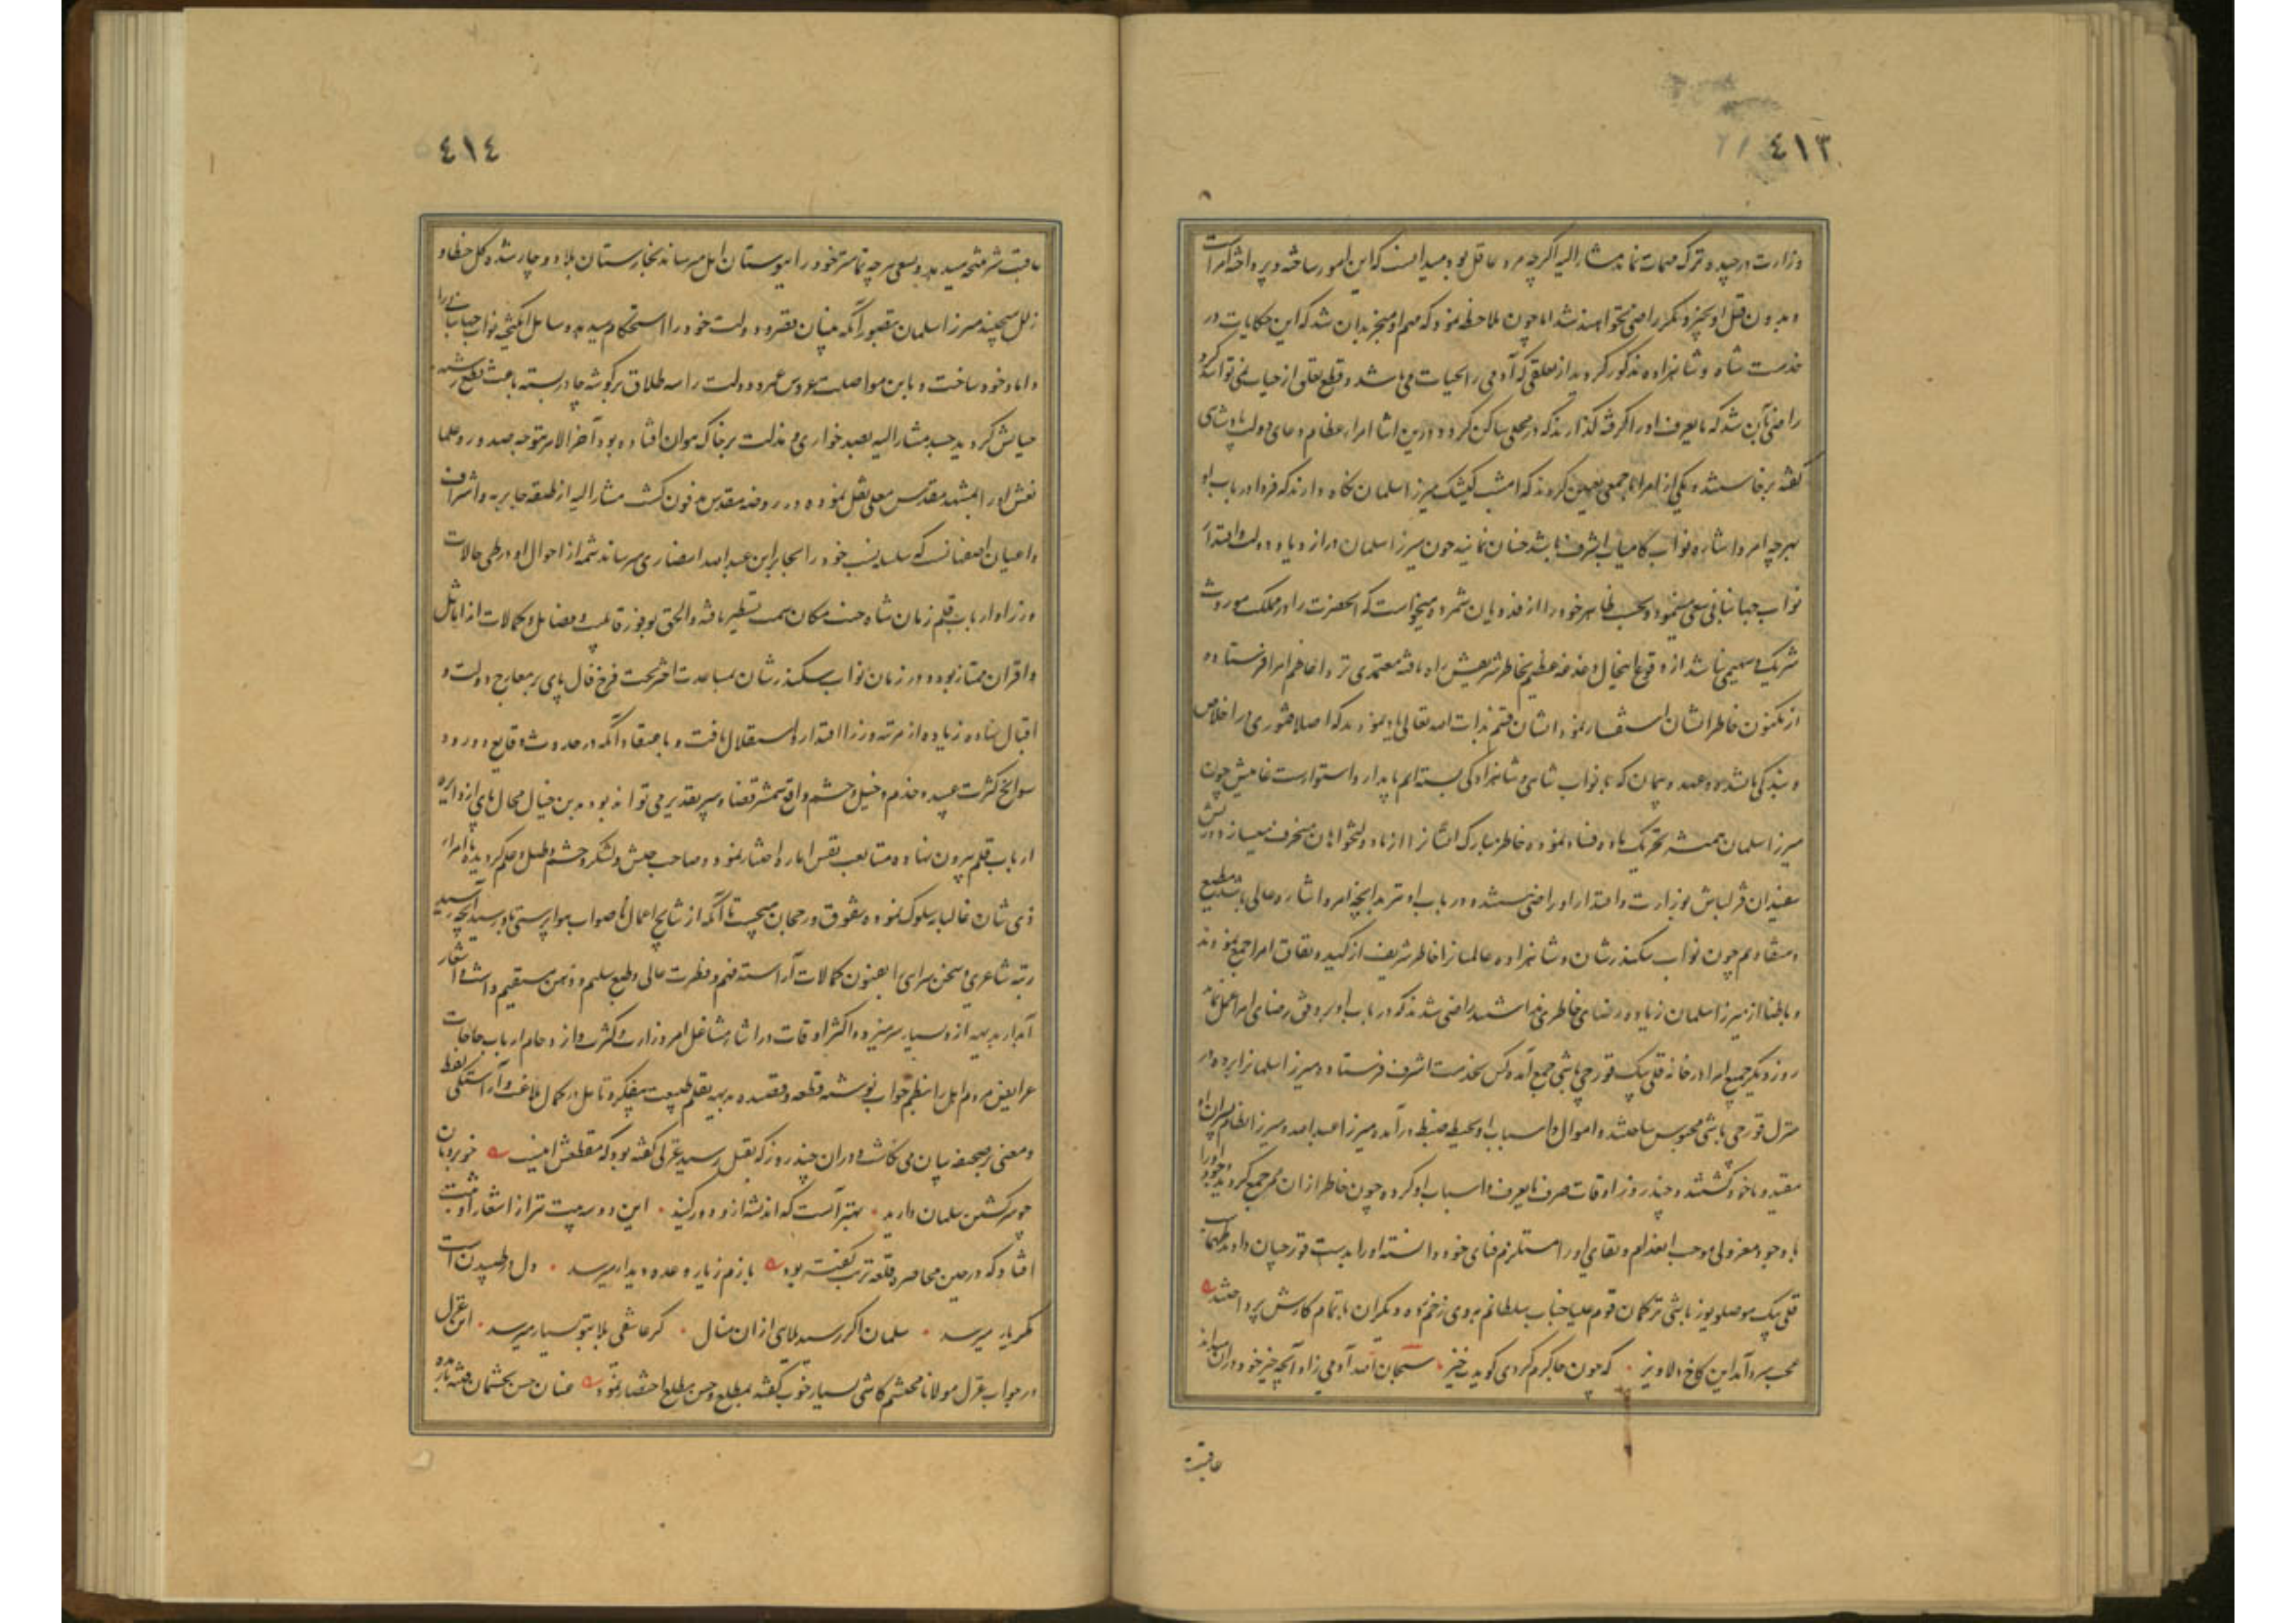 ٤١٣
وزارت درچیده ترک مهمات نماید مشارالیه اگرچه مرد عاقل بود میدانست که این امور ساخته و پرداخته امراست
و بدون قتل او بچیز دیگر راضی نخواهند شد اما چون ملاحظه نمود که مهم او منجر بدان شد که این حکایات در
خدمت شاه و شاهزاده مذکور گردید از تعلقی که آدمی را بحیات می باشد و قطع تعلق از حیات نمی تواند کرد
راضی بآن شد که مایعرف او را گرفته گذارند که در محلی ساکن گردد درین اثنا امراء عظام دعای دولت پادشاهی
گفته برخاستند و یکی از امرا را با جمعی تعیین کردند که امشب کیشک میرزا سلمان نگاه دارند که فردا در باب او
بهرچه امر و اشاره نواب کامیاب اشرف باشد چنان نمایند چون میرزا سلمان در ازدیاد دولت و اقتدار
نواب جهانبانی سعی مینمود و بحسب ظاهر خود را از فدویان شمرده میخواست که آنحضرت را در ملک موروث
شریک و سهیمی نباشد از وقوع اینحال دغدغه عظیم بخاطر شریفش راه یافته معتمدی نزد اعاظم امرا فرستاده
از مکنون خاطر ایشان استفسار نمود ایشان قسم بذات الله تعالی یاد نمودند که اصلا فتوری در اخلاص
و بندگی ما نشده و عهد و پیمان که با نواب شاهی و شاهزادگی بسته ایم پایدار و استوارست غایتش چون
میرزا سلمان همیشه تحریک ماده فساد نموده خاطر مبارک ایشانرا از ما دولتخواهان منحرف میسازد و ریش
سفیدان قزلباش بوزارت و اقتدار او راضی نیستند و در باب او نیز بدانچه امر و اشاره عالی باشد مطیع
و منقادیم چون نواب سکندرشان و شاهزاده عالمیانرا خاطر شریف از کید و نفاق امرا جمع نمودند
و باطنا از میرزا سلمان زیاده رضای خاطری نداشتند راضی شدند که در باب او بر وفق رضای امرا عمل نمایند
روز دیگر جمیع امرا در خانه قلی بیک قورچی باشی جمع آمده کس بخدمت اشرف فرستاده میرزا سلمانرا برده در
منزل قورچی باشی محبوس ساختند و اموال و اسباب او بحیطه ضبط درآمده میرزا عبدالله و میرزا نظام پسران او
مقید و ماخوذ گشتند و چند روز اوقات صرف مایعرف و اسباب او کرده چون خاطر از آن ممر جمع گردید وجود او را
با وجود معزولی موجب انعدام و بقای او را مستلزم فنای خود دانسته او را بدست قورچیان دادند طهماسب
قلی بیک موصلو یوزباشی ترکمان قوم علیاجناب سلطانم بروی زخم زده و دیگران باتمام کارش پرداختند
عجب سردآمد این کاخ دلاویز • که چون جا گرم کردی گویدت خیز • سبحان الله آدمی زاد آنچه خیر خود در آن میداند
عاقبت
٤١٤
عاقبت شر نتیجه میدهد و بسعی هرچه تمامتر خود را ببوستان امل میرساند بخارستان بلا دوچار شده گل خطا و
زلل میچیند میرزا سلمان بتصور آنکه بنیان قصر دولت خود را استحکام میدهد وسایل انگیخته نواب جهانبانی را
داماد خود ساخت و باین مواصلت عروس عمر و دولت را سه طلاق بر گوشه چادر بسته باعث قطع رشته
حیاتش گردید جسد مشارالیه بصد خواری و مذلت بر خاک هوان افتاده بود آخرالامر بتوجه صدور و علما
نعش او را بمشهد مقدس معلی نقل نموده در روضه مقدس مدفون گشت مشارالیه از طبقه جابریه و اشراف
و اعیان اصفهانست که سلسله نسب خود را بجابر ابن عبدالله انصاری میرسانند شمه از احوال او در طی حالات
وزرا و ارباب قلم زمان شاه جنت مکان سمت تسطیر یافته والحق بوفور قابلیت و فضایل و کمالات از اماثل
و اقران ممتاز بوده در زمان نواب سکندرشان بمساعدت اختر بخت فرخ فال پای بر معارج دولت و
اقبال نهاده زیاده از مرتبه وزرا اقتدار و استقلال یافت و باعتقاد آنکه در حدوث وقایع و ورود
سوانح کثرت عبید و خدم و خیل و حشم واقی شمشیر قضا و سپر تقدیر می تواند بود بدین خیال محال پای از دایره
ارباب قلم بیرون نهاده متابعت نفس اماره اختیار نمود و صاحب جیش و لشکر و حشم و طبل و علم گردیده با امراء
ذی شان غالبانه سلوک نموده تفوق و رجحان میجست تا آنکه از نتایج اعمال ناصواب هواپرستی باو رسید آنچه رسید
رتبه شاعری و سخن سرای او بفنون کمالات آراسته فهم و فطرت عالی و طبع سلیم و ذهن مستقیم داشت و اشعار
آبدار بدیهه ازو بسیار سر میزد و اکثر اوقات در اثناء مشاغل امر وزارت و کثرت و ازدحام ارباب حاجات
عرایض مردم اهل را بنظم جواب نوشته قطعه و قصیده بدیهه بقلم طبیعت بیفکر و تامل در کمال بلاغت و آراستگی لفظ
و معنی بر صحیفه بیان می نگاشت و در آن چند روز که بقتل رسید غزلی گفته بود که مقطعش اینست خوبرویان
چو سر کشتن سلمان دارید • بهتر آنست که اندیشه ازو دور کنید • این دو سه بیت نیز از اشعار او ثبت
افتاد که در حین محاصره قلعه تربت گفته بود بازم ز یار وعده دیدار میرسد • دل در طپیدن است
مگر یار میرسد • سلمان اگر رسید بلای از آن منال • کز عاشقی بلا بتو بسیار میرسد • این غزل
در جواب غزل مولانا محتشم کاشی بسیار خوب گفته بمطلع و حسن مطلع اختصار نمود